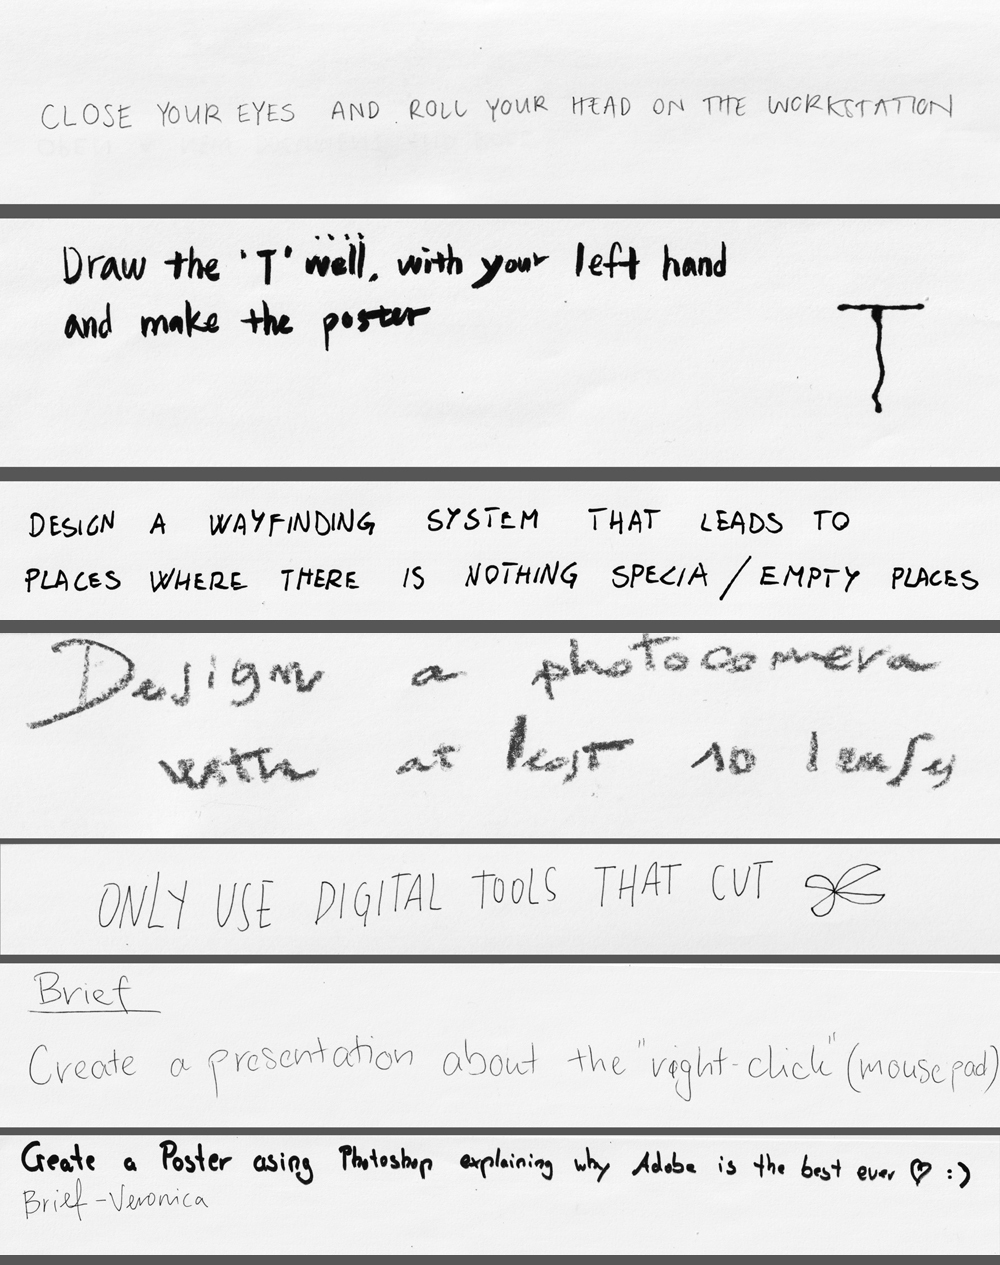 CLOSE YOUR EYES AND ROLL YOUR HEAD ON THE WORKSTATION
Draw the 'T' well, with your left hand
and make the poster
T
DESIGN A WAYFINDING SYSTEM THAT LEADS TO
PLACES WHERE THERE IS NOTHING SPECIA / EMPTY PLACES
Design a photocamera
with at least 10 lenses
ONLY USE DIGITAL TOOLS THAT CUT
Brief
Create a presentation about the "right-click" (mousepad)
Create a Poster using Photoshop explaining why Adobe is the best ever ♡ :)
Brief - Veronica